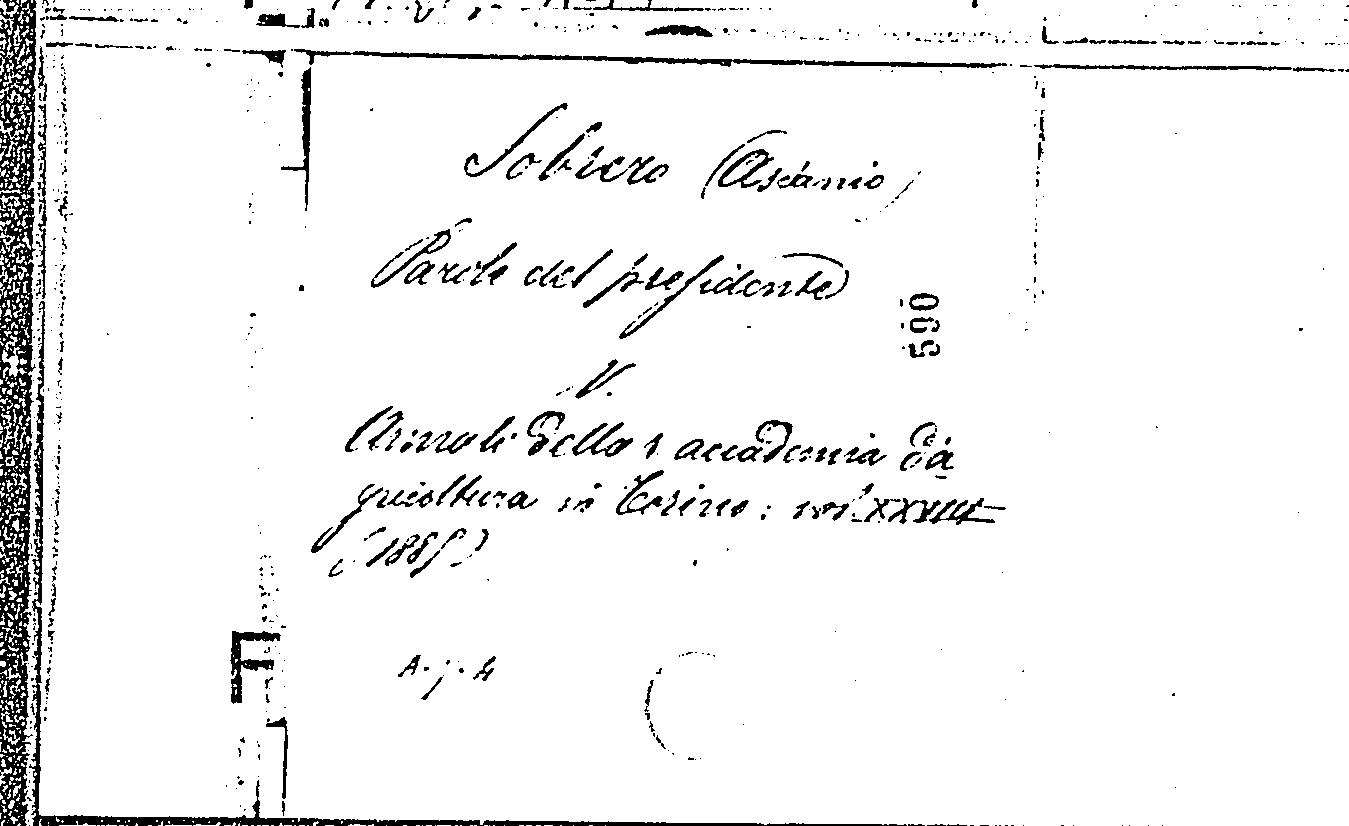 Sobrero (Ascanio)
Parole del presidente
590
V.
Annali della r. accademia d'a
gricoltura di Torino: vol. XXVIII
(1885)
A. j. 4